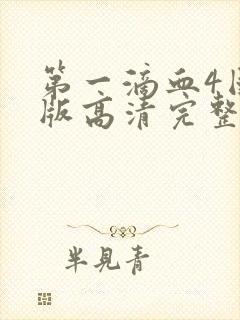 第一滴血4
版高清完整
半见青